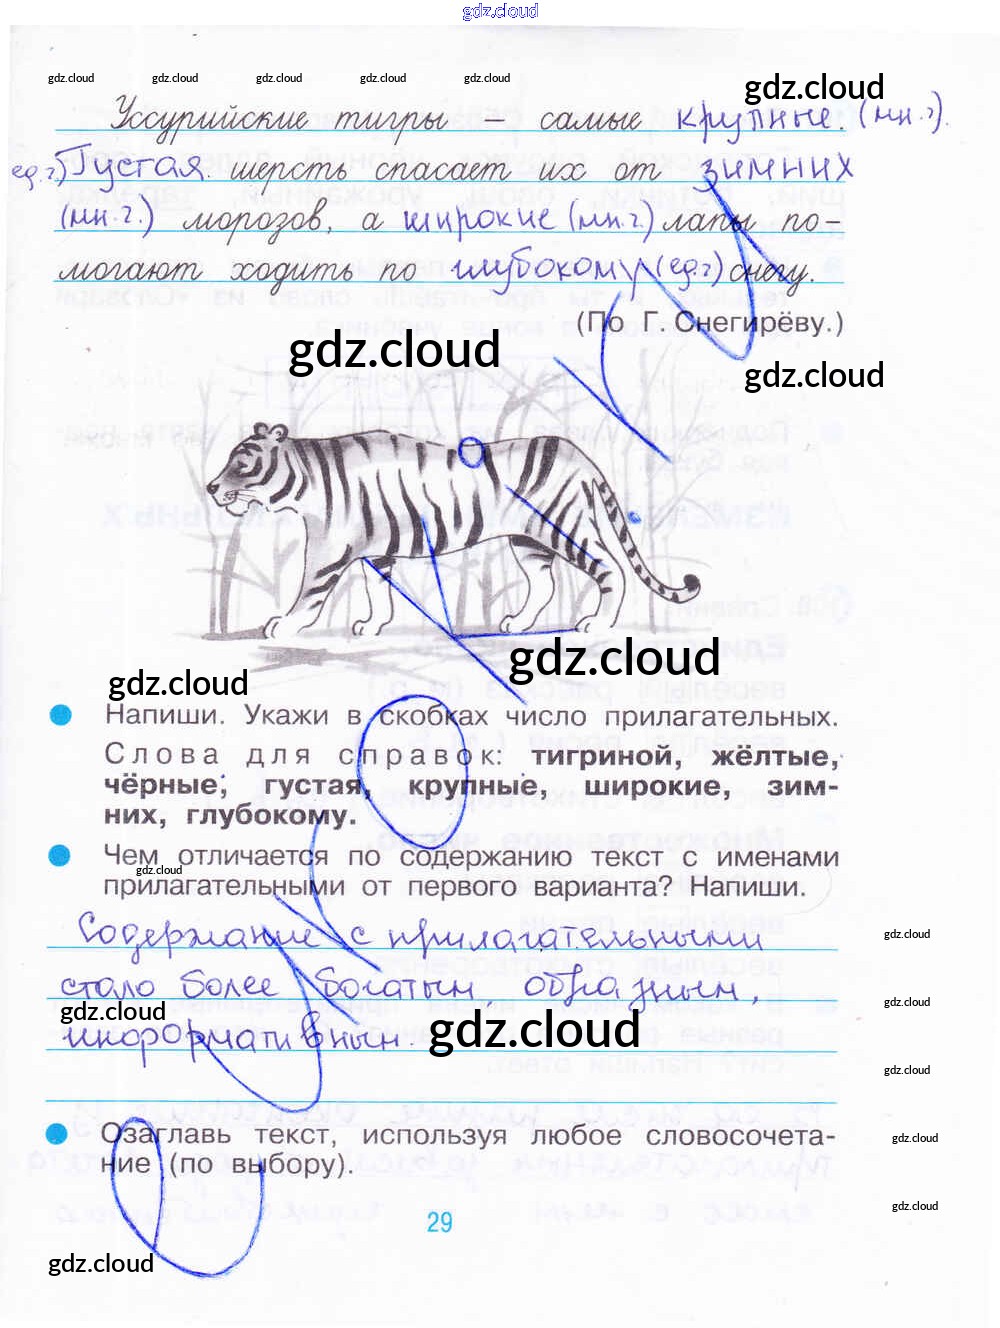 gdz.cloud
gdz.cloud gdz.cloud gdz.cloud gdz.cloud gdz.cloud
gdz.cloud
Уссурийские тигры – самые крупные. (мн.ч).
ед.ч.) Густая. шерсть спасает их от зимних
(мн.ч.) морозов, а широкие (мн.ч.) лапы по-
могают ходить по глубокому (ед.ч) снегу.
(По Г. Снегирёву.)
gdz.cloud
gdz.cloud
gdz.cloud
gdz.cloud
Напиши. Укажи в скобках число прилагательных.
Слова для справок: тигриной, жёлтые,
чёрные, густая, крупные, широкие, зим-
них, глубокому.
Чем отличается по содержанию текст с именами
gdz.cloud
прилагательными от первого варианта? Напиши.
Содержание с прилагательными
gdz.cloud
стало более богатым, образным,
gdz.cloud
gdz.cloud
информативным.
gdz.cloud
gdz.cloud
Озаглавь текст, используя любое словосочета-
gdz.cloud
ние (по выбору).
gdz.cloud
29
gdz.cloud